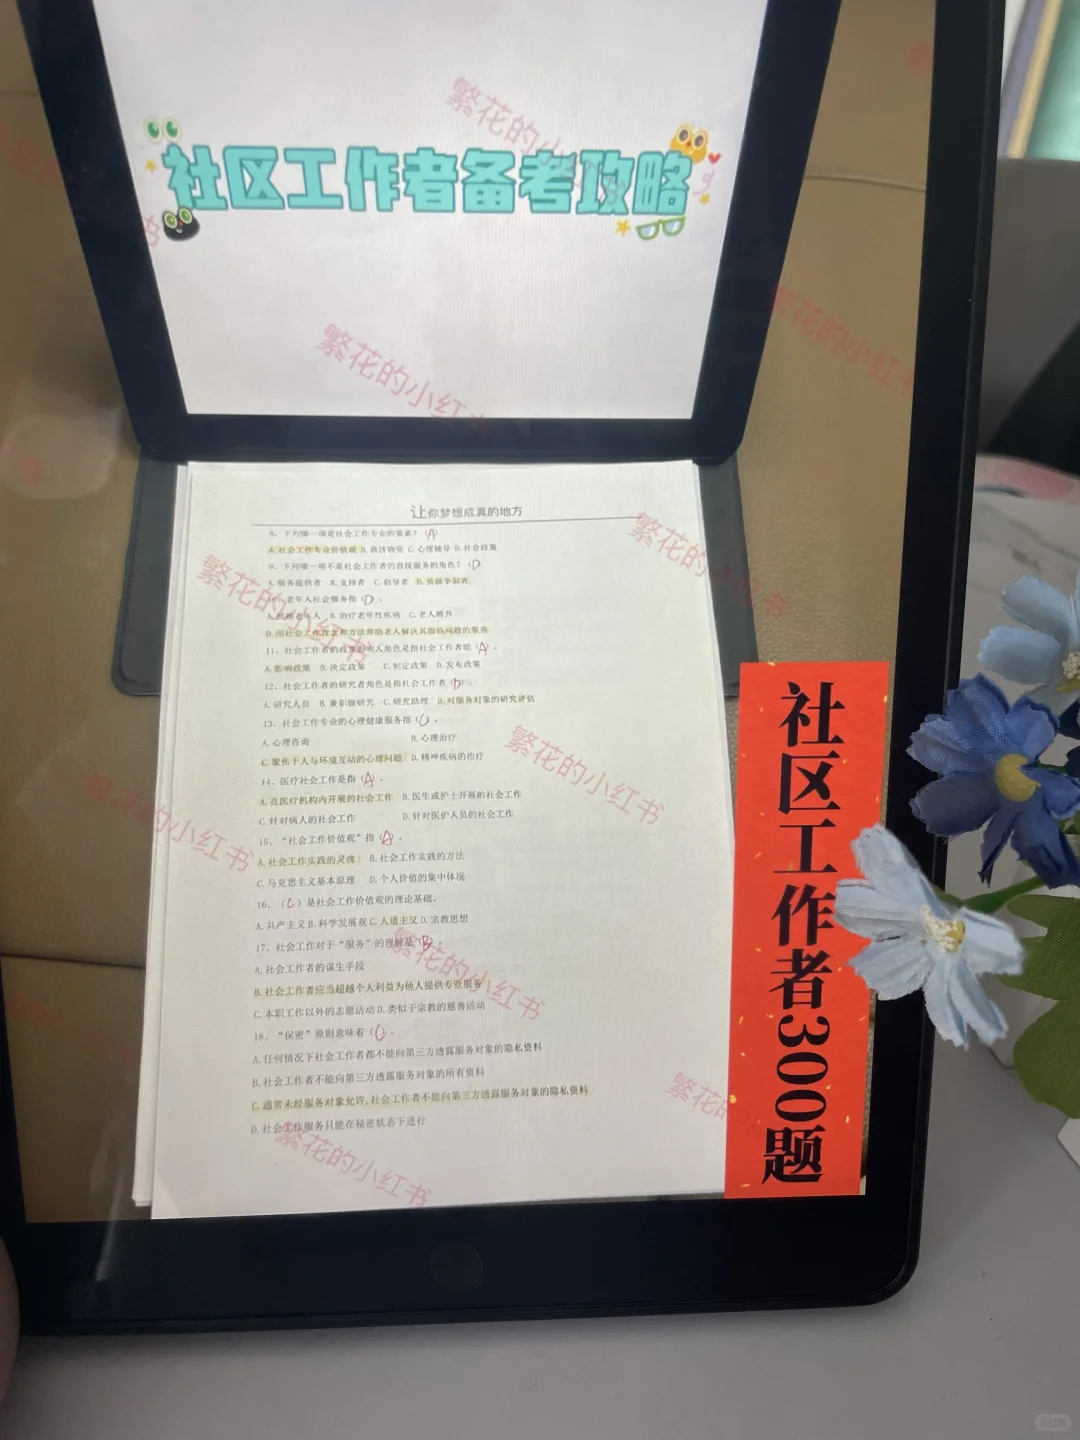 社区工作者备考攻略
让你梦想成真的地方
8、下列哪一项是社会工作专业的要素？（A）
A.社会工作专业价值观 B.救济物资 C.心理辅导 D.社会政策
9、下列哪一项不是社会工作者的直接服务的角色？（D
A.服务提供者 B.支持者 C.倡导者 D.资源争取者
10、老年人社会服务指（D）。
A.照顾老年人 B.治疗老年性疾病 C.老人赡养
D.用社会工作理念和方法帮助老人解决其面临问题的服务
11、社会工作者的政策影响人角色是指社会工作者能（A）。
A.影响政策 B.决定政策 C.制定政策 D.发布政策
12、社会工作者的研究者角色是指社会工作者（D）。
A.研究人员 B.兼职做研究 C.研究助理 D.对服务对象的研究评估
13、社会工作专业的心理健康服务指（C）。
A.心理咨询 B.心理治疗
C.聚焦于人与环境互动的心理问题 D.精神疾病的治疗
14、医疗社会工作是指（A）。
A.在医疗机构内开展的社会工作 B.医生或护士开展的社会工作
C.针对病人的社会工作 D.针对医护人员的社会工作
15、“社会工作价值观”指（A）。
A.社会工作实践的灵魂 B.社会工作实践的方法
C.马克思主义基本原理 D.个人价值的集中体现
16、（C）是社会工作价值观的理论基础。
A.共产主义 B.科学发展观 C.人道主义 D.宗教思想
17、社会工作对于“服务”的理解是（B）。
A.社会工作者的谋生手段
B.社会工作者应当超越个人利益为他人提供专业服务
C.本职工作以外的志愿活动 D.类似于宗教的慈善活动
18、“保密”原则意味着（C）。
A.任何情况下社会工作者都不能向第三方透露服务对象的隐私资料
B.社会工作者不能向第三方透露服务对象的所有资料
C.通常未经服务对象允许,社会工作者不能向第三方透露服务对象的隐私资料
D.社会工作服务只能在秘密状态下进行
社区工作者300题
繁花的小红书
繁花的小红书
繁花的小红书
繁花的小红书
繁花的小红书
繁花的小红书
繁花的小红书